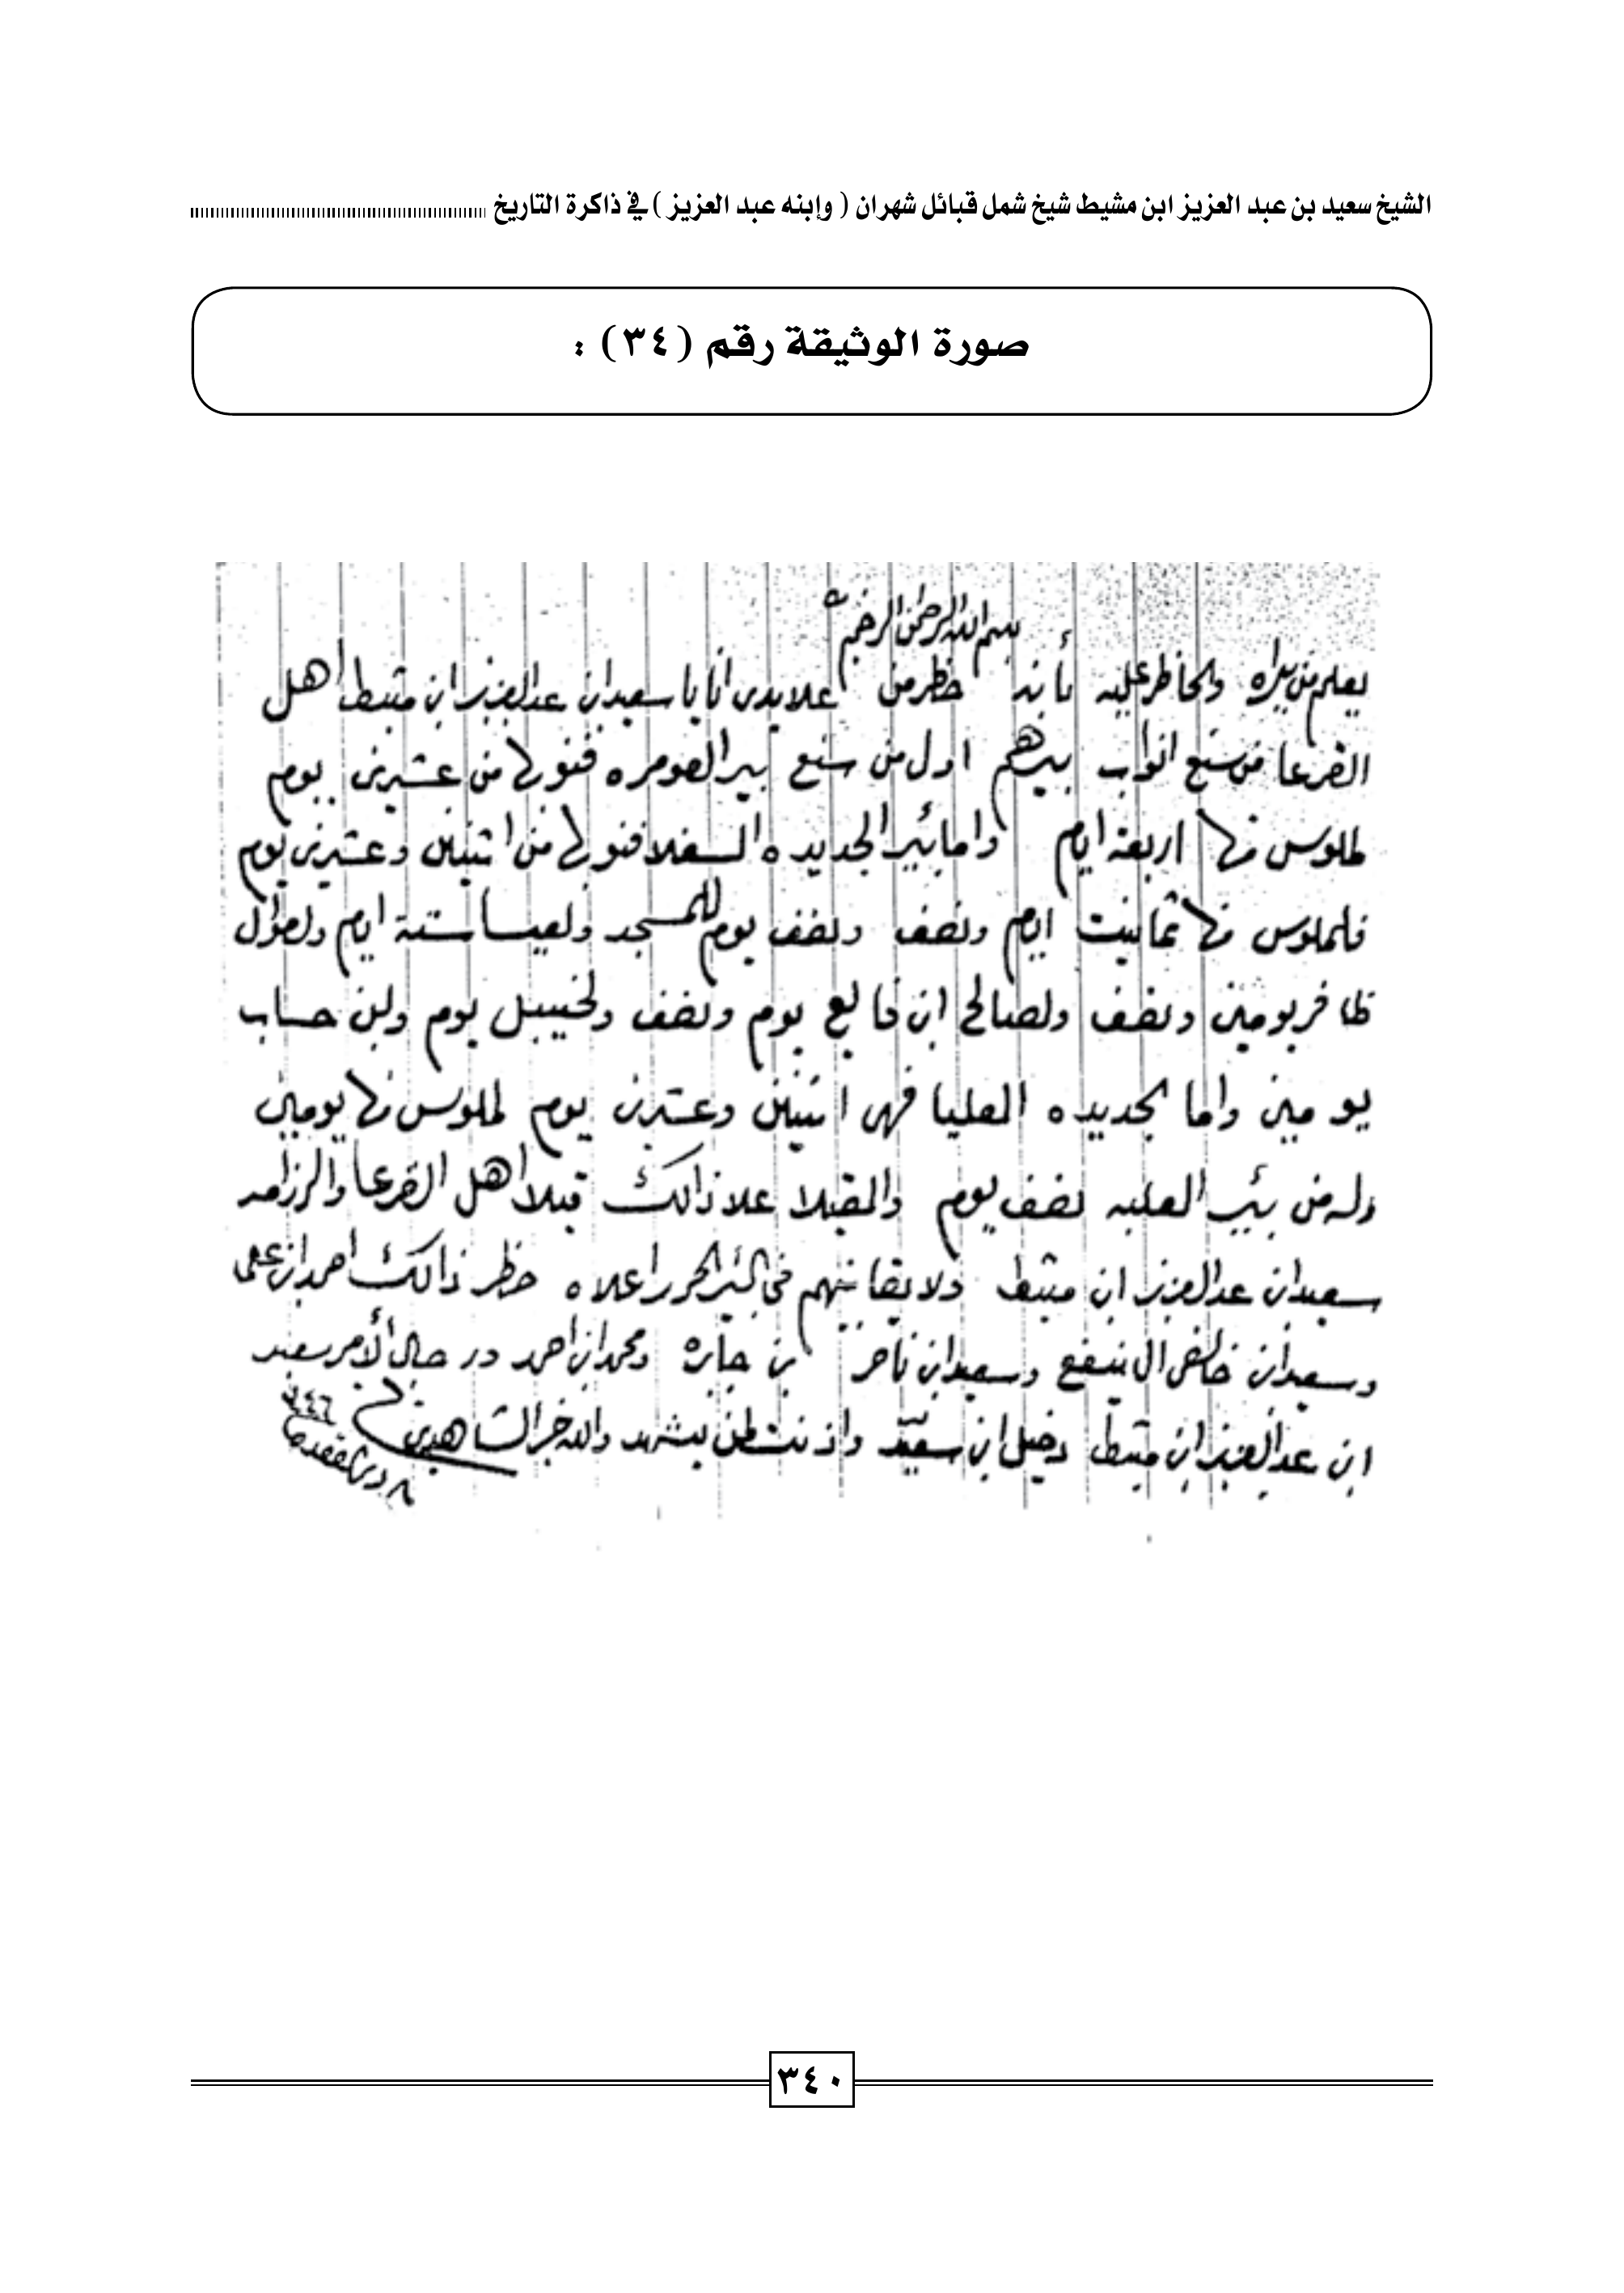 الشيخ سعيد بن عبد العزيز ابن مشيط شيخ شمل قبائل شهران ( وإبنه عبد العزيز ) في ذاكرة التاريخ
صورة الوثيقة رقم (٣٤) :
بسم الله الرحمن الرحيم
يعلم من يراه والحاظر عليه بأنه حظر من علا يدي انا يا سعيد ابن عبد العزيز ابن مشيط اهل
القرعا من سنع انواب بيرهم اول من سنع بير العومره فنوبها من عشرين يوم
لملوس منها اربعة ايام وامابئير الجديده السفلا فنوبها من اثنين وعشرين يوم
فلملوس منها ثمانيت ايام ونصف ونصف يوم للمسجد ولعيسا ستة ايام ولعوال
ظافر يومين ونصف ولصالح ابن فايع يوم ونصف ولخيبل يوم ولبن حساب
يومين واما لجديده العليا فهي اثنين وعشرين يوم لملوس منها يومين
وله من بئير العليه نصف يوم والمقبلا علا ذالك قبلا اهل القرعا والرزامه
سعيد ابن عبد العزيز ابن مشيط ولا بقا بينهم في البئير المحرر اعلاه حظر ذالك احمد ابن علي
وسعيد ابن خالص ال ينفع وسعيد ابن ناصر بن جابره ومحمد ابن احمد در حال الأمر سعيد
ابن عبد العزيز ابن مشيط دخيل ابن سعيد واذ نتطن بيشهد والله خير الشاهدين
٨ دي القعده
٣٤٠